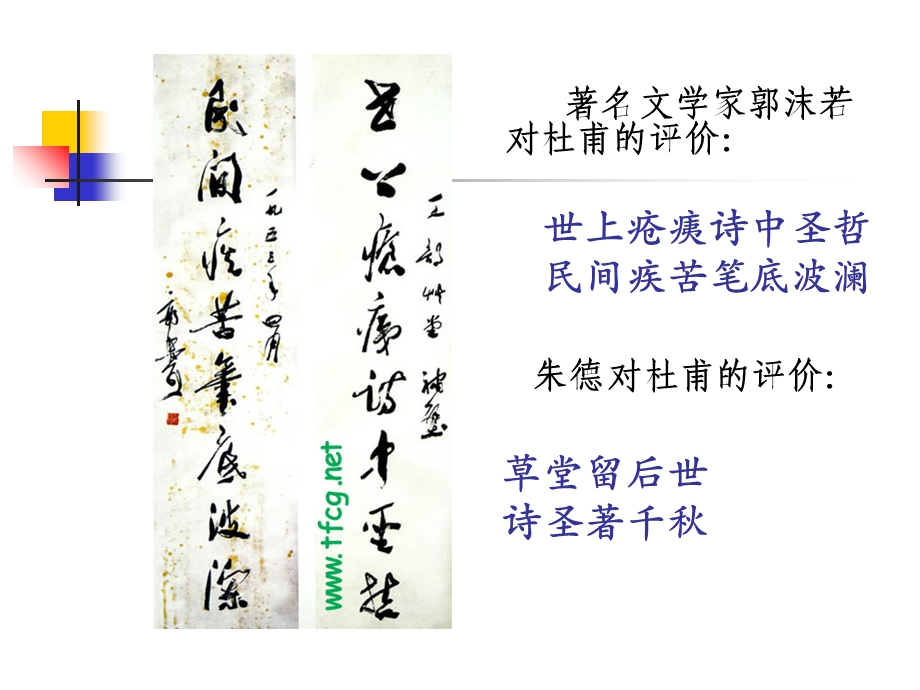 著名文学家郭沫若
对杜甫的评价:
世上疮痍诗中圣哲
民间疾苦笔底波澜
朱德对杜甫的评价:
草堂留后世
诗圣著千秋
世上瘡痍詩中聖哲
民間疾苦筆底波瀾
一九五三年四月
www.tfcg.net